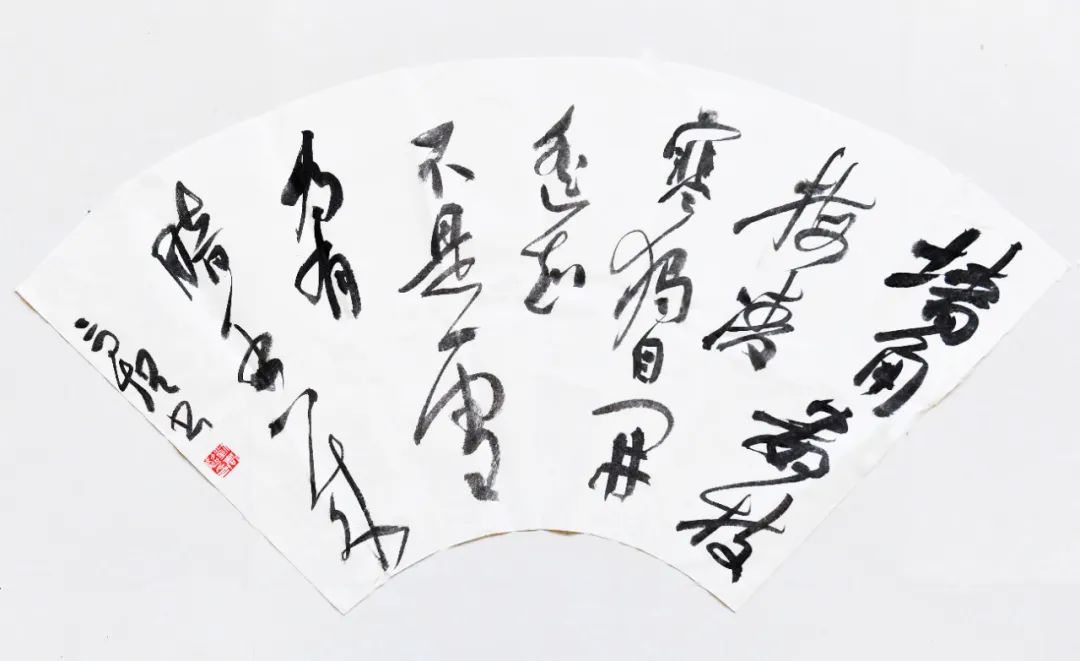 墙角数枝
梅凌
寒独自開
遥知
不是雪
为有
暗香来
书